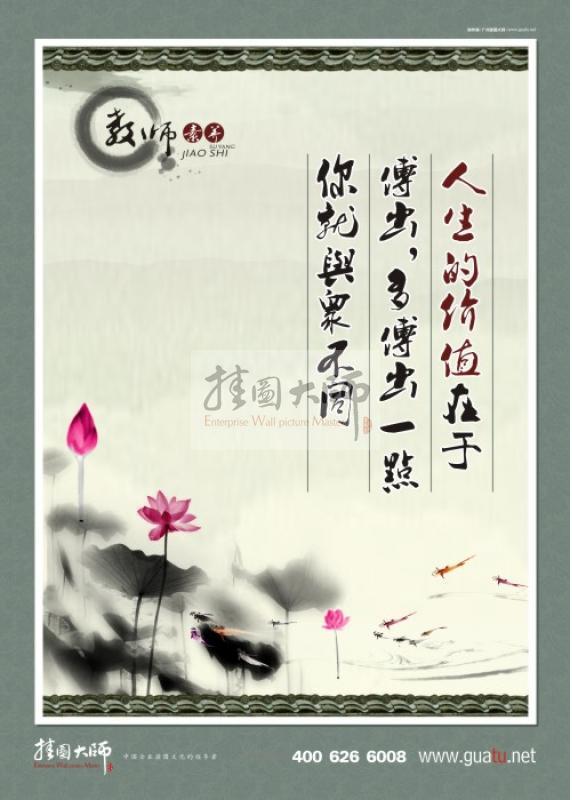 www.guatu.net
教师
素养
SU YANG
JIAO SHI
人生的价值在于
傅出，多傅出一點
你就與眾不同
挂圖大师
Enterprise Wall picture Master
挂圖大师
Enterprise Wall picture Master
中国企业挂图文化的领导者
400 626 6008 www.guatu.net